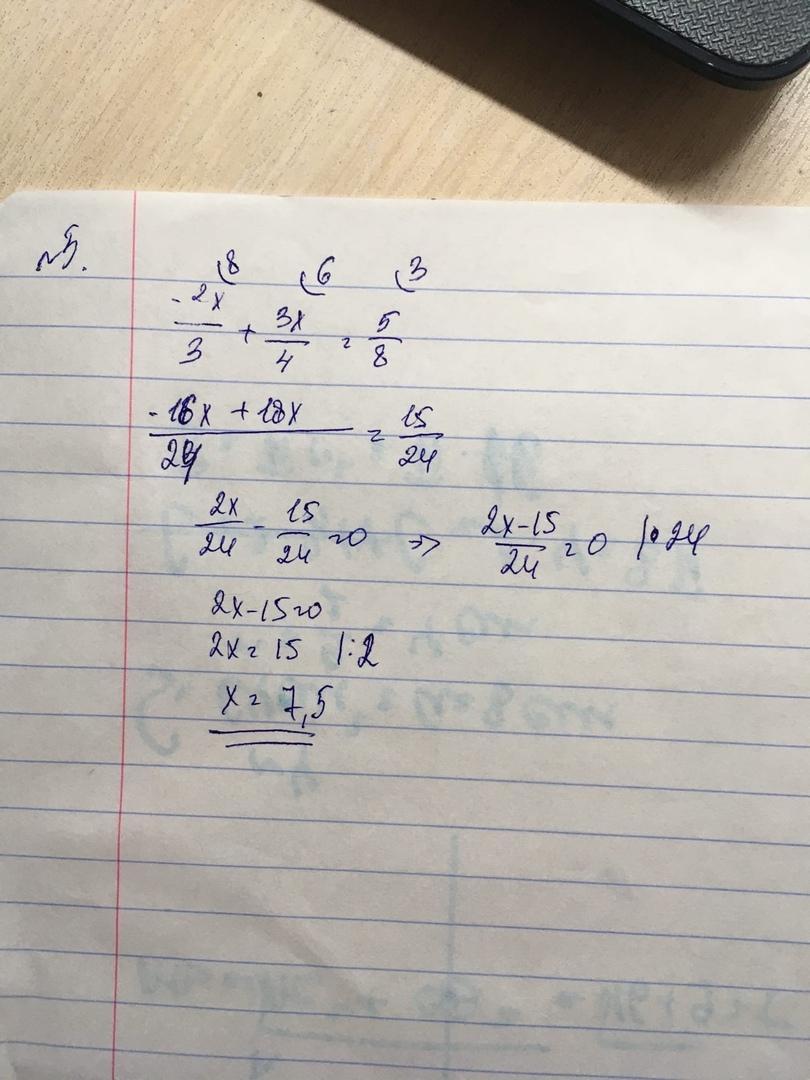 №5.
8 6 3
-2x/3 + 3x/4 = 5/8
-16x + 18x/24 = 15/24
2x/24 - 15/24 = 0 => 2x-15/24 = 0 |•24
2x-15=0
2x = 15 |:2
x = 7,5